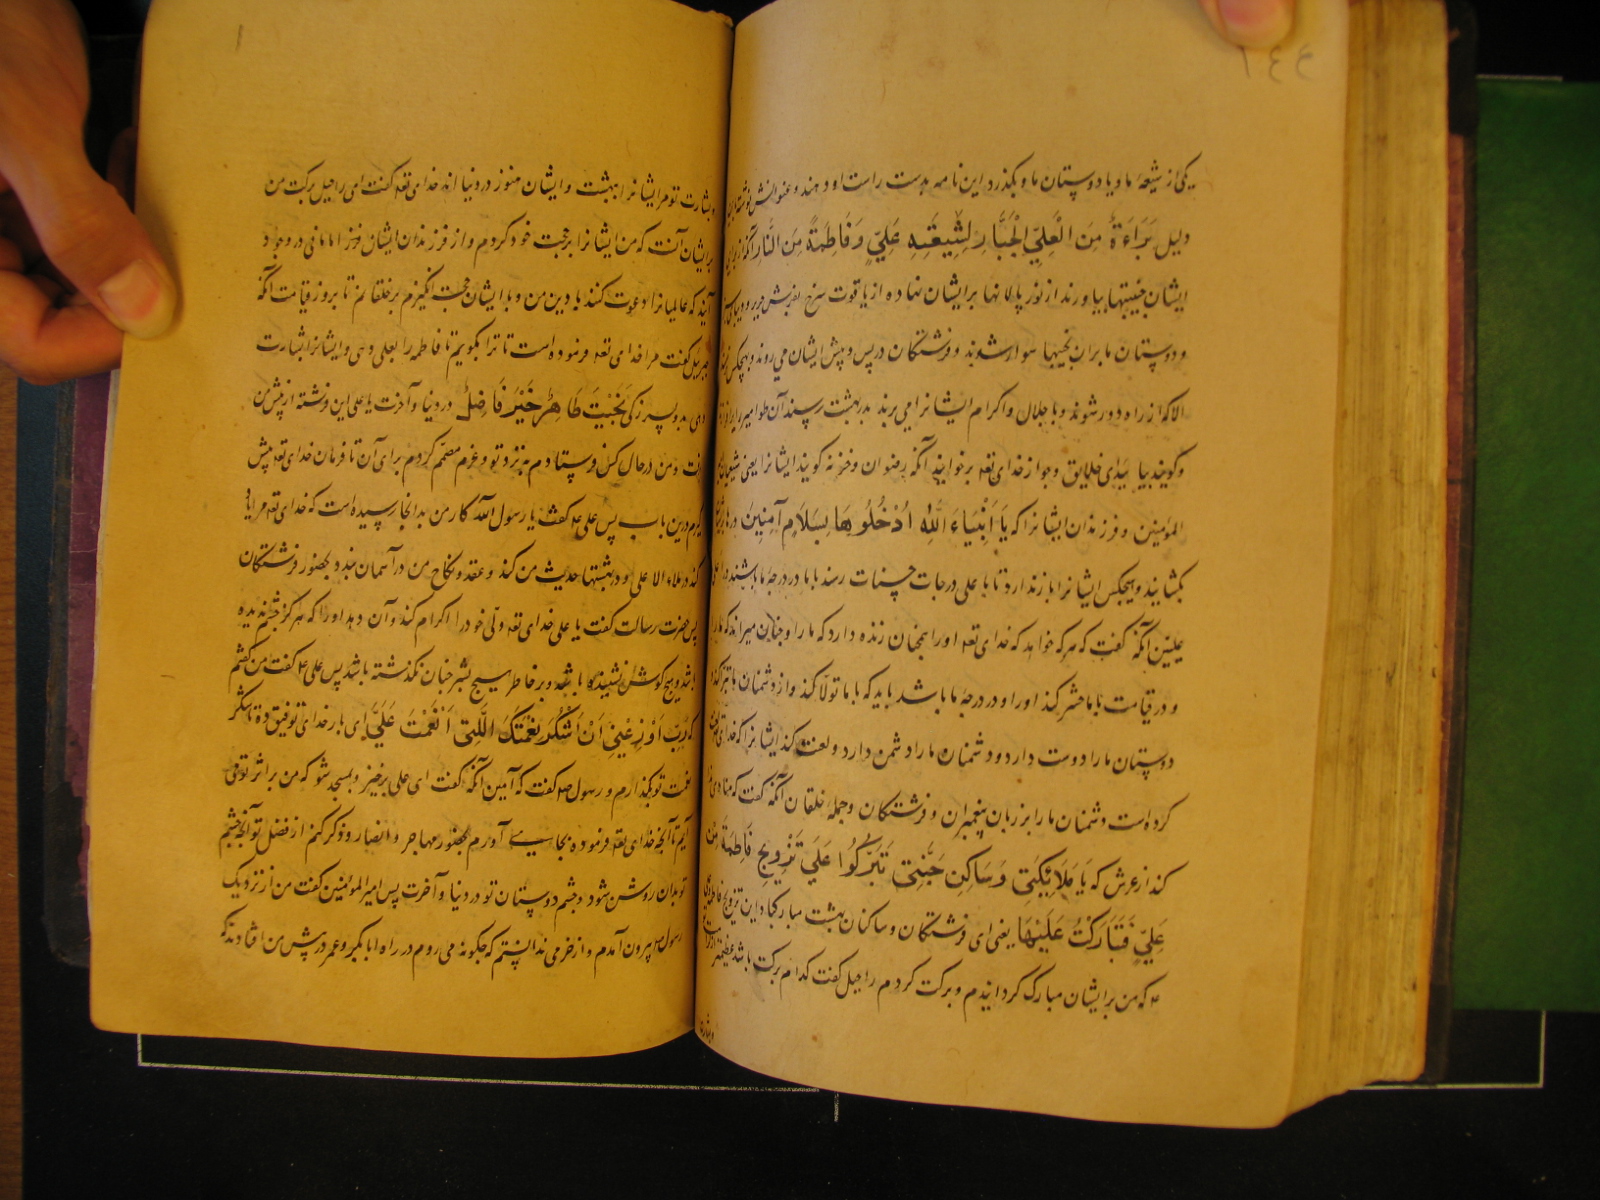 ١٤٤
یکی از شیعهٔ ما و یا دوستان ما و بگذرد این نامه بدست راست او دهند و عنوانش نوشته
دلیل بَرَاءَةٌ مِنَ الْعَلِيِّ الْجَبَّارِ لِشِيعَةِ عَلِيٍّ وَفَاطِمَةَ مِنَ النَّارِ آنگه از برای
ایشان جنیبتها بیاورند از نور پالانها بر ایشان نهاده از یاقوت سرخ بفرش حریر و دیبا
و دوستان ما بران نجیبها سوار شوند و فرشتگان در پس و پیش ایشان می روند و هیچکس
الا که از راه دور شوند و با جلال و اکرام ایشانرا می برند بدر بهشت رسند آن طوامیر را
و گویند بیا خلایق و جواز خدای تعه برخوانید آنگه رضوان و خزنه گویند ایشانرا یعنی شیعیان
المؤمنین و فرزندان ایشانرا که يَا اَنْبِيَاءَ اللّٰهِ اُدْخُلُوهَا بِسَلَامٍ آمِنِينَ درها
بگشایند و هیچکس ایشانرا باز ندارد تا با علی درجات جنات رسند با ما در درجهٔ ما باشند در
علیین آنگه گفت که هر که خواهد که خدای تعه اورا بجنان زنده دارد که ما را و چنان میراند که ما را
و در قیامت با ما حشر کند اورا و در درجهٔ ما باشد باید که با ما تولّا کند و از دشمنان ما تبرّا کند
دوستان ما را دوست دارد و دشمنان ما را دشمن دارد و لعنت کند ایشانرا که خدای
کرده است دشمنان ما را بر زبان پیغمبران و فرشتگان و جمله خلقان آنگه گفت که منادی
کند از عرش که يَا مَلَائِكَتِي وَسَاكِنِ جَنَّتِي تَبَرَّكُوا عَلَى تَزْوِيجِ فَاطِمَةَ مِنْ
عَلِيٍّ فَقَبَارَكْتُ عَلَيْهَا یعنی ای فرشتگان و ساکنان بهشت مبارکباد این تزویج فاطمه
که من بر ایشان مبارک گردانیدم و برکت کردم راحیل گفت کدام برکت باشد عظیمتر
وبشارت
١
وبشارت تو مر ایشانرا بهشت و ایشان هنوز در دنیا اند خدای تعه گفت ای راحیل برکت من
بر ایشان آنست که من ایشانرا بر حجت خود کردم و از فرزندان ایشان نیز امامانی در وجود
آیند که عالمیانرا دعوت کنند با دین من و با ایشان حجت انگیزم بر خلقانم تا بروز قیامت آنگه
جبریل گفت مرا خدای تعه فرموده است تا ترا بگویم تا فاطمه را بعلی دهی و ایشانرا بشارت
دهی بدو پسر زکی نَجِیْبَ طَاهِرْ خَیْرْ فَاضِلْ در دنیا و آخرت یا علی این فرشته از پیش من
رفت و من در حال کس فرستادم بنزد تو و عزم مصمّم کردم برای آن تا فرمان خدای تعه پیش
گیرم درین باب پس علی گفت یا رسول اللّه کار من بدانجا رسیده است که خدای تعه مرا یاد
کند در ملاء الا علی و در بهشتها حدیث من کند و عقد و نکاح من در آسمان بندد بحضور فرشتگان
پس حضرت رسالت گفت یا علی خدای تعه ولیّ خود را اکرام کند و آن دهد اورا که هرگز چشم ندیده
باشد و هیچ گوش نشنیده باشد و بر خاطر هیچ بشر چنان نگذشته باشد پس علی گفت من گفتم
که رَبِّ اَوْزِعْنِي اَنْ اَشْكُرَ نِعْمَتَكَ الَّتِي اَنْعَمْتَ عَلَيَّ ای بار خدای توفیق ده تا شکر
نعمت تو بگذارم و رسول ص گفت که آمین آنگه گفت ای علی برخیز و بمسجد شو که من بر اثر تو می
آیم تا آنچه خدای تعه فرموده بجای آورم بحضور مهاجر و انصار و ذکر کنم از فضل تو آنچه چشم
تو بدان روشن شود و چشم دوستان تو در دنیا و آخرت پس امیرالمؤمنین گفت من از نزدیک
رسول ص بیرون آمدم و از خرمی ندانستم که چگونه می روم در راه ابا بکر و عمر در پیش من افتادند که